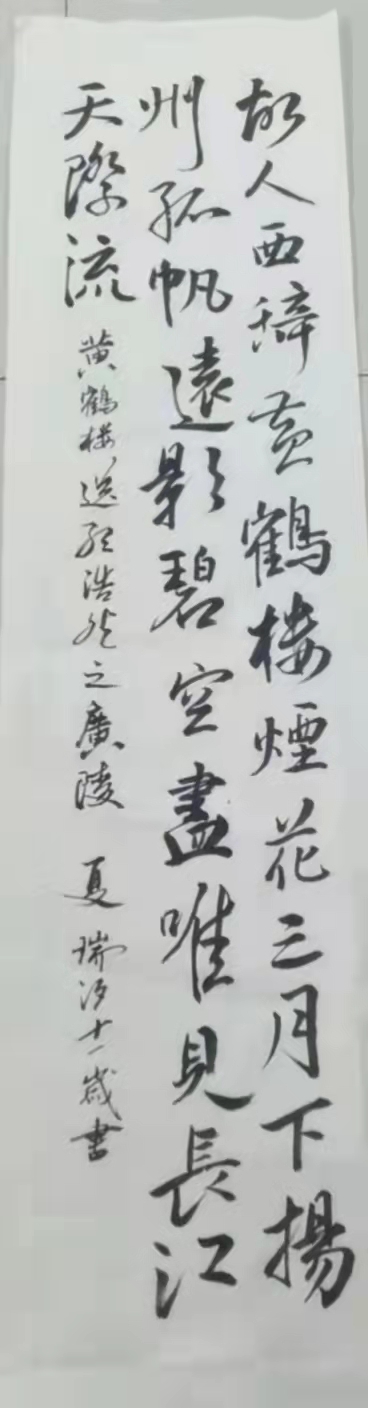 故人西辞黄鶴楼煙花三月下揚
州孤帆遠影碧空盡唯見長江
天際流 黄鶴楼送孟浩然之廣陵 夏瑞汐十一歲書